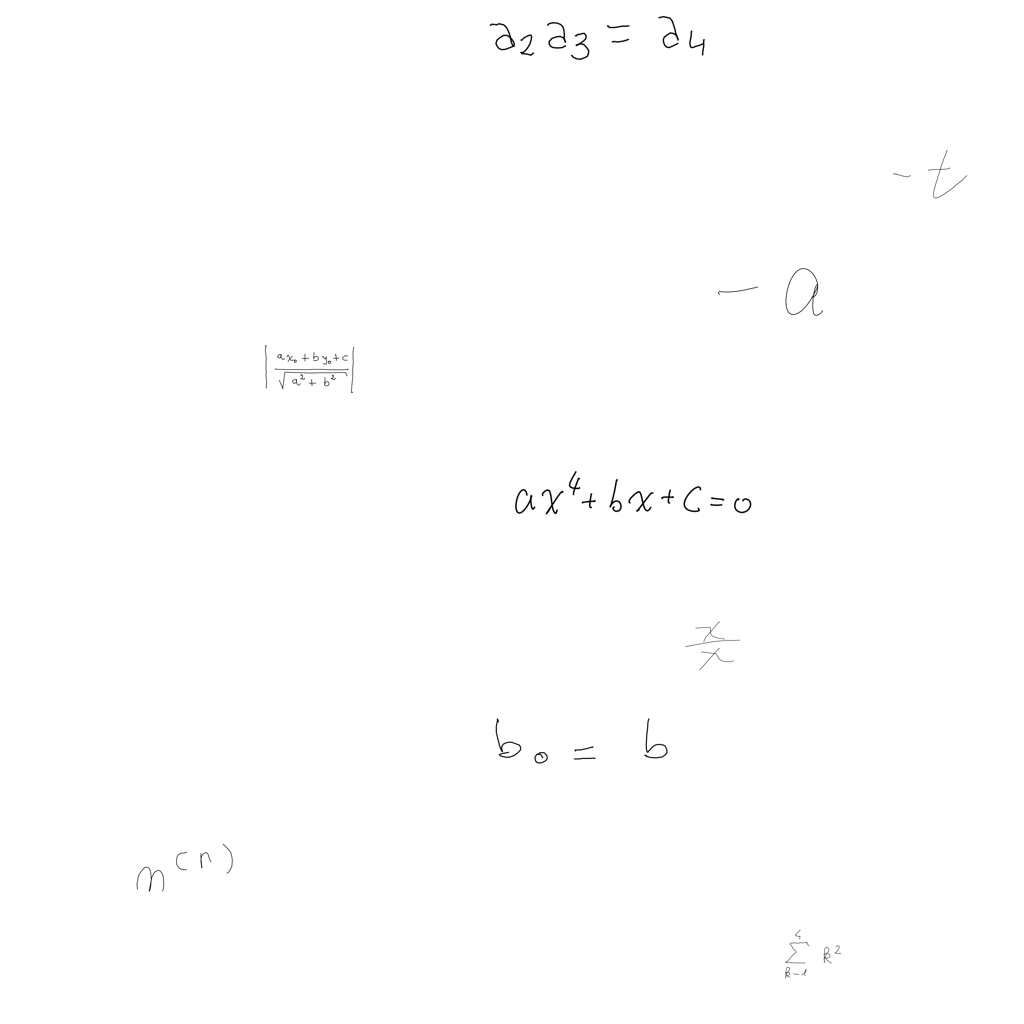 ∂₂∂₃ = ∂₄
- t
- a
|(ax₀ + by₀ + c)/√(a² + b²)|
ax⁴ + bx + c = 0
x/x
b₀ = b
n⁽ⁿ⁾
∑_{k-1}^{4} k²